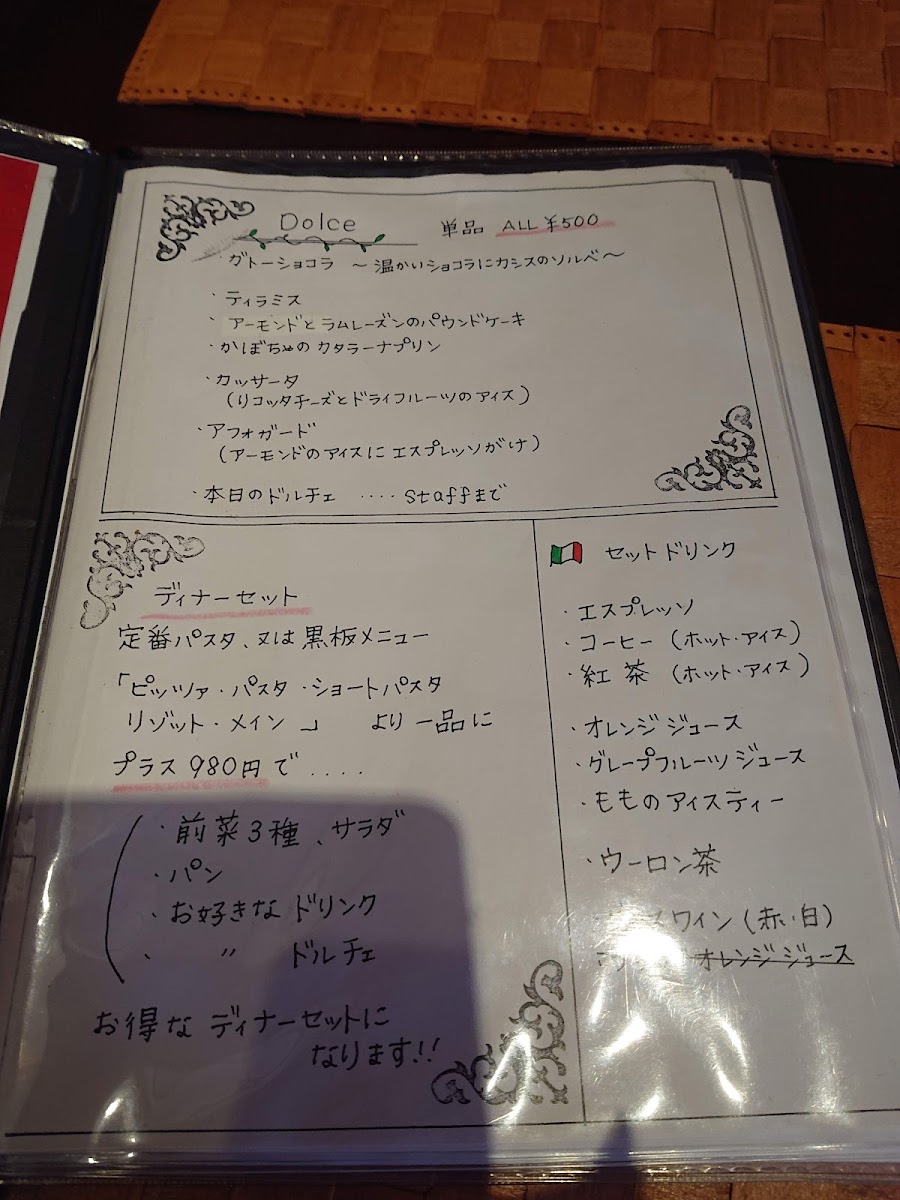 Dolce 単品 ALL ¥500
ガトーショコラ 〜温かいショコラにカシスのソルベ〜
・ティラミス
・アーモンドとラムレーズンのパウンドケーキ
・かぼちゃのカタラーナプリン
・カッサータ
(リコッタチーズとドライフルーツのアイス)
・アフォガード
(アーモンドのアイスにエスプレッソがけ)
・本日のドルチェ ‥‥staffまで
ディナーセット
定番パスタ、又は黒板メニュー
「ピッツァ・パスタ・ショートパスタ
リゾット・メイン」 より一品に
プラス980円で‥‥
・前菜3種、サラダ
・パン
・お好きなドリンク
・ 〃 ドルチェ
お得なディナーセットに
なります!!
セットドリンク
・エスプレッソ
・コーヒー (ホット・アイス)
・紅茶 (ホット・アイス)
・オレンジジュース
・グレープフルーツジュース
・もものアイスティー
・ウーロン茶
ワイン(赤・白)
オレンジジュース